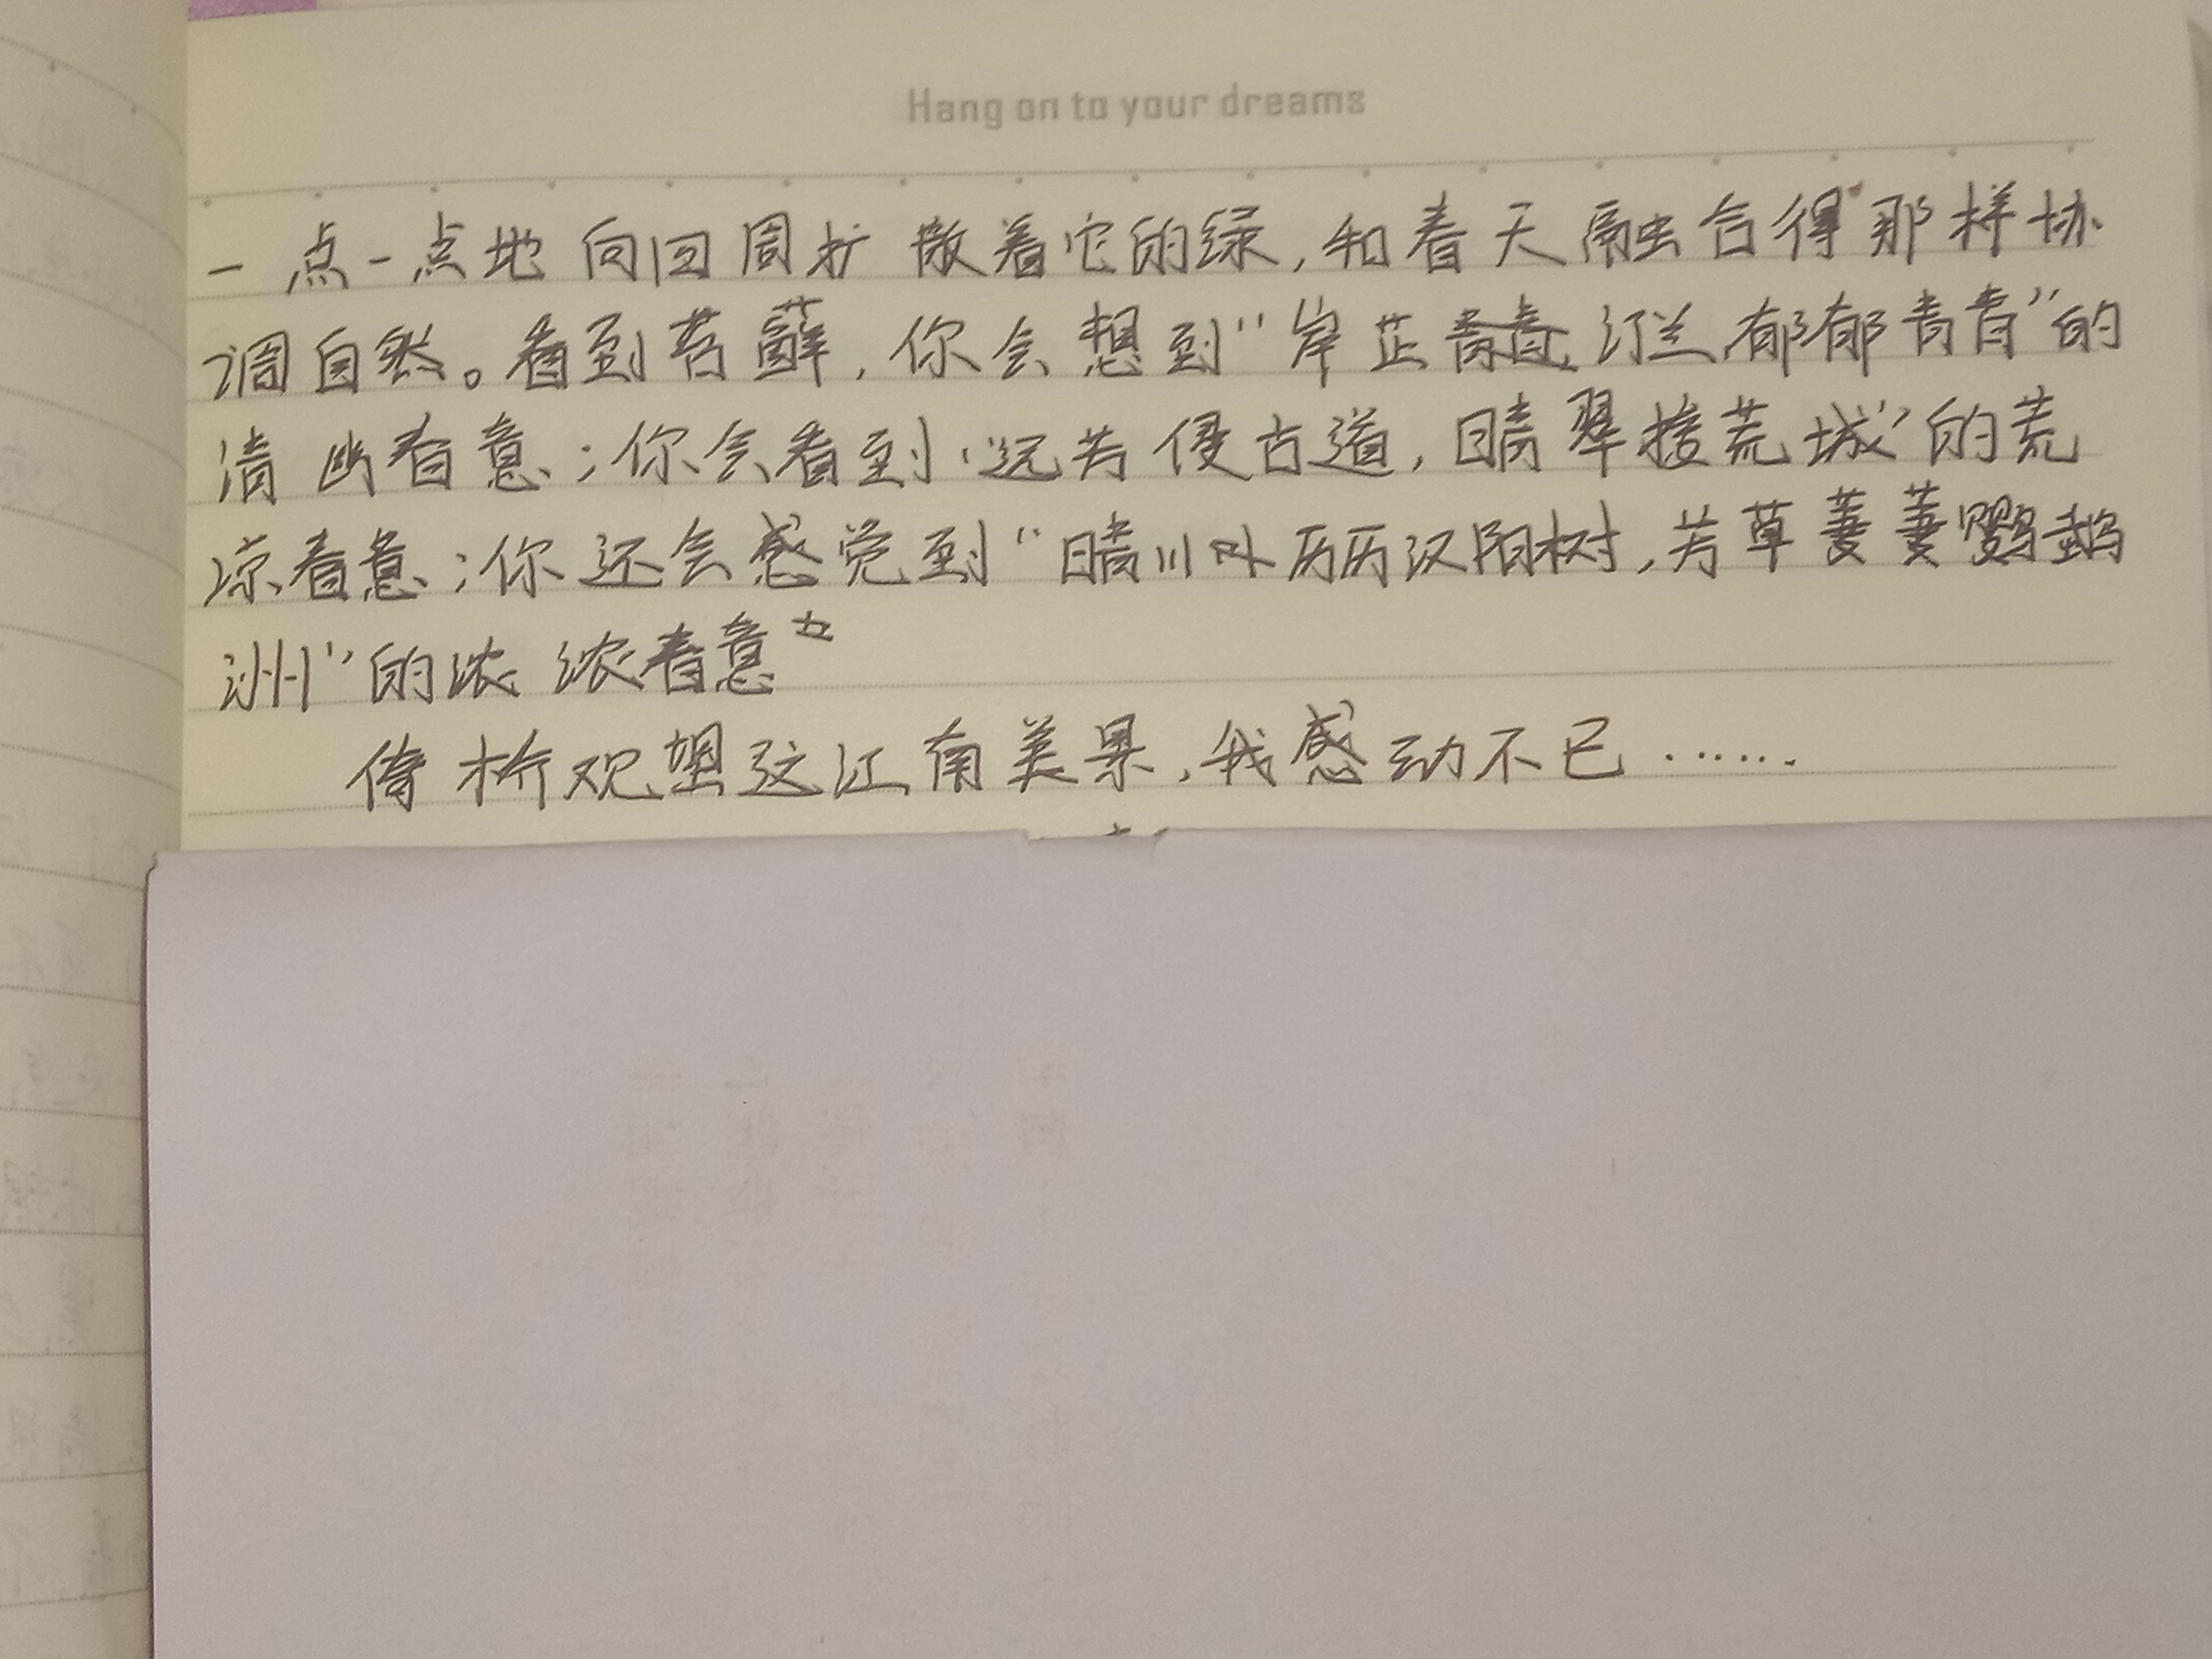 Hang on to your dreams
一点一点地向四周扩散着它的绿,和春天融合得那样协
调自然。看到苔藓,你会想到"岸芷汀兰,郁郁青青"的
清幽春意;你会看到"远芳侵古道,晴翠接荒城"的荒
凉春意;你还会感觉到"晴川历历汉阳树,芳草萋萋鹦鹉
洲"的浓浓春意
倚桥观望这江南美景,我感动不已……